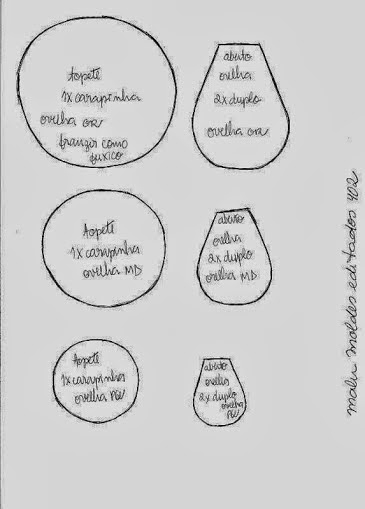 topete
1x carapinha
ovelha GR
franzir como
fuxico
aberto
orelha
2x duplo
ovelha GR
topete
1x carapinha
ovelha MD
aberto
orelha
2x duplo
ovelha MD
topete
1x carapinha
ovelha PQ
aberto
orelha
2x duplo
ovelha
PQ
malu moldes editados 402